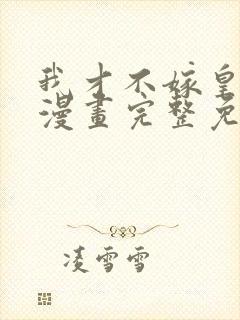 我才不嫁皇
漫畫完整免
凌雪雪